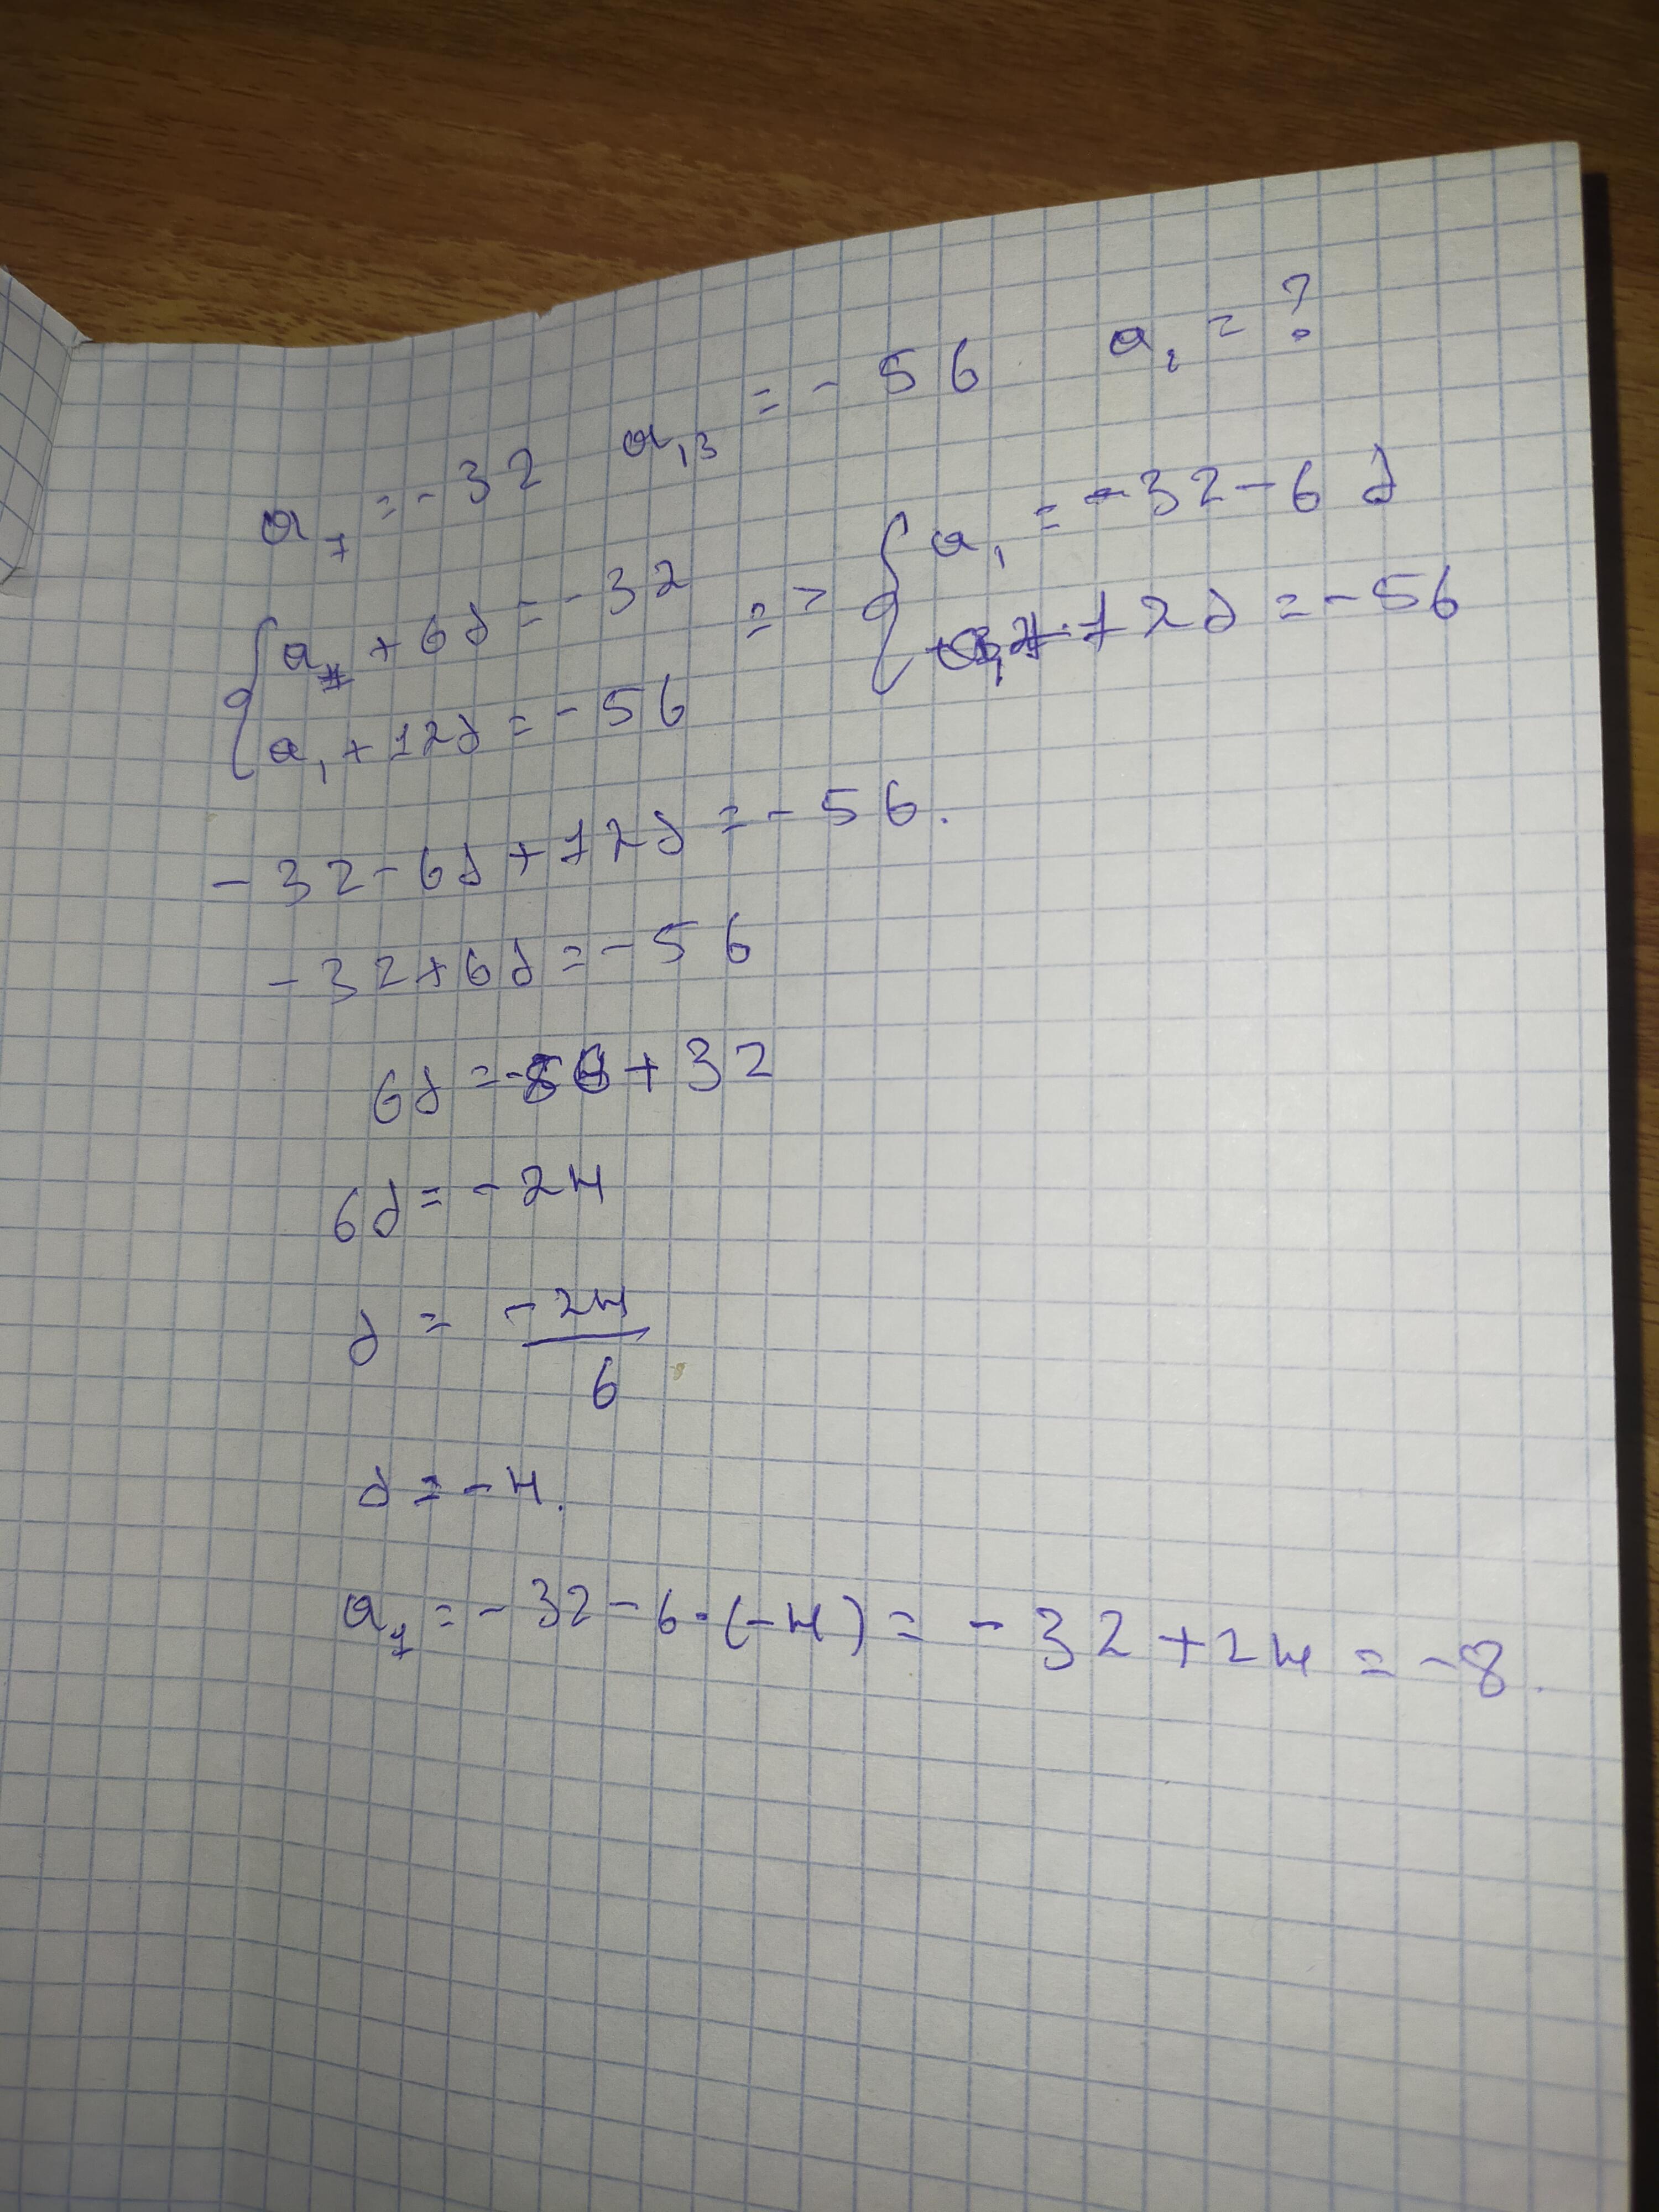 a₇ = -32 a₁₃ = -56 a₁ = ?
{ a₁ + 6d = -32 => { a₁ = -32 - 6d
{ a₁ + 12d = -56 { a₁ + 12d = -56
-32 - 6d + 12d = -56.
-32 + 6d = -56
6d = -56 + 32
6d = -24
d = -24/6
d = -4.
a₁ = -32 - 6·(-4) = -32 + 24 = -8.